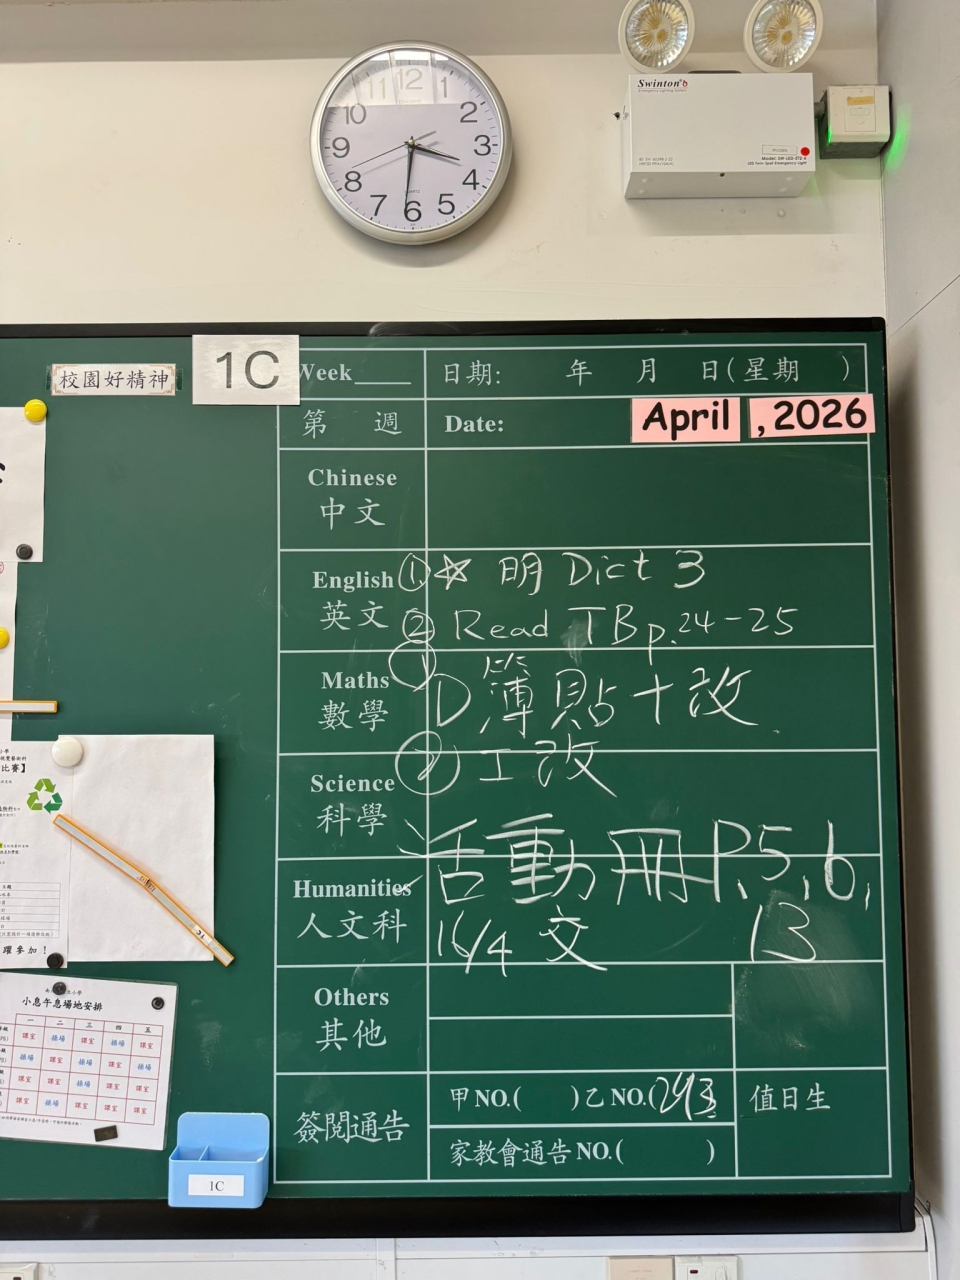 12
11
1
10
2
9
3
8
4
7
5
6
QUARTZ
Swinton
Emergency Lighting System
校園好精神
1C
Week
日期: 年 月 日(星期 )
第 週
Date: April , 2026
Chinese
中文
English
英文
① ☆ 明 Dict 3
② Read TB p.24-25
Maths
數學
① D 簿貼+改
② 工改
Science
科學
Humanities
人文科
活動冊 P.5,6,
16/4 交 13
Others
其他
簽閱通告
甲 NO.( ) 乙 NO.(243
家教會通告 NO.( )
值日生
比賽】
躍參加!
小息午息場地安排
一 二 三 四 五
課室 操場 課室 操場 課室
操場 課室 操場 課室 操場
課室 課室 操場 課室 課室
課室 操場 課室 課室 課室
1C